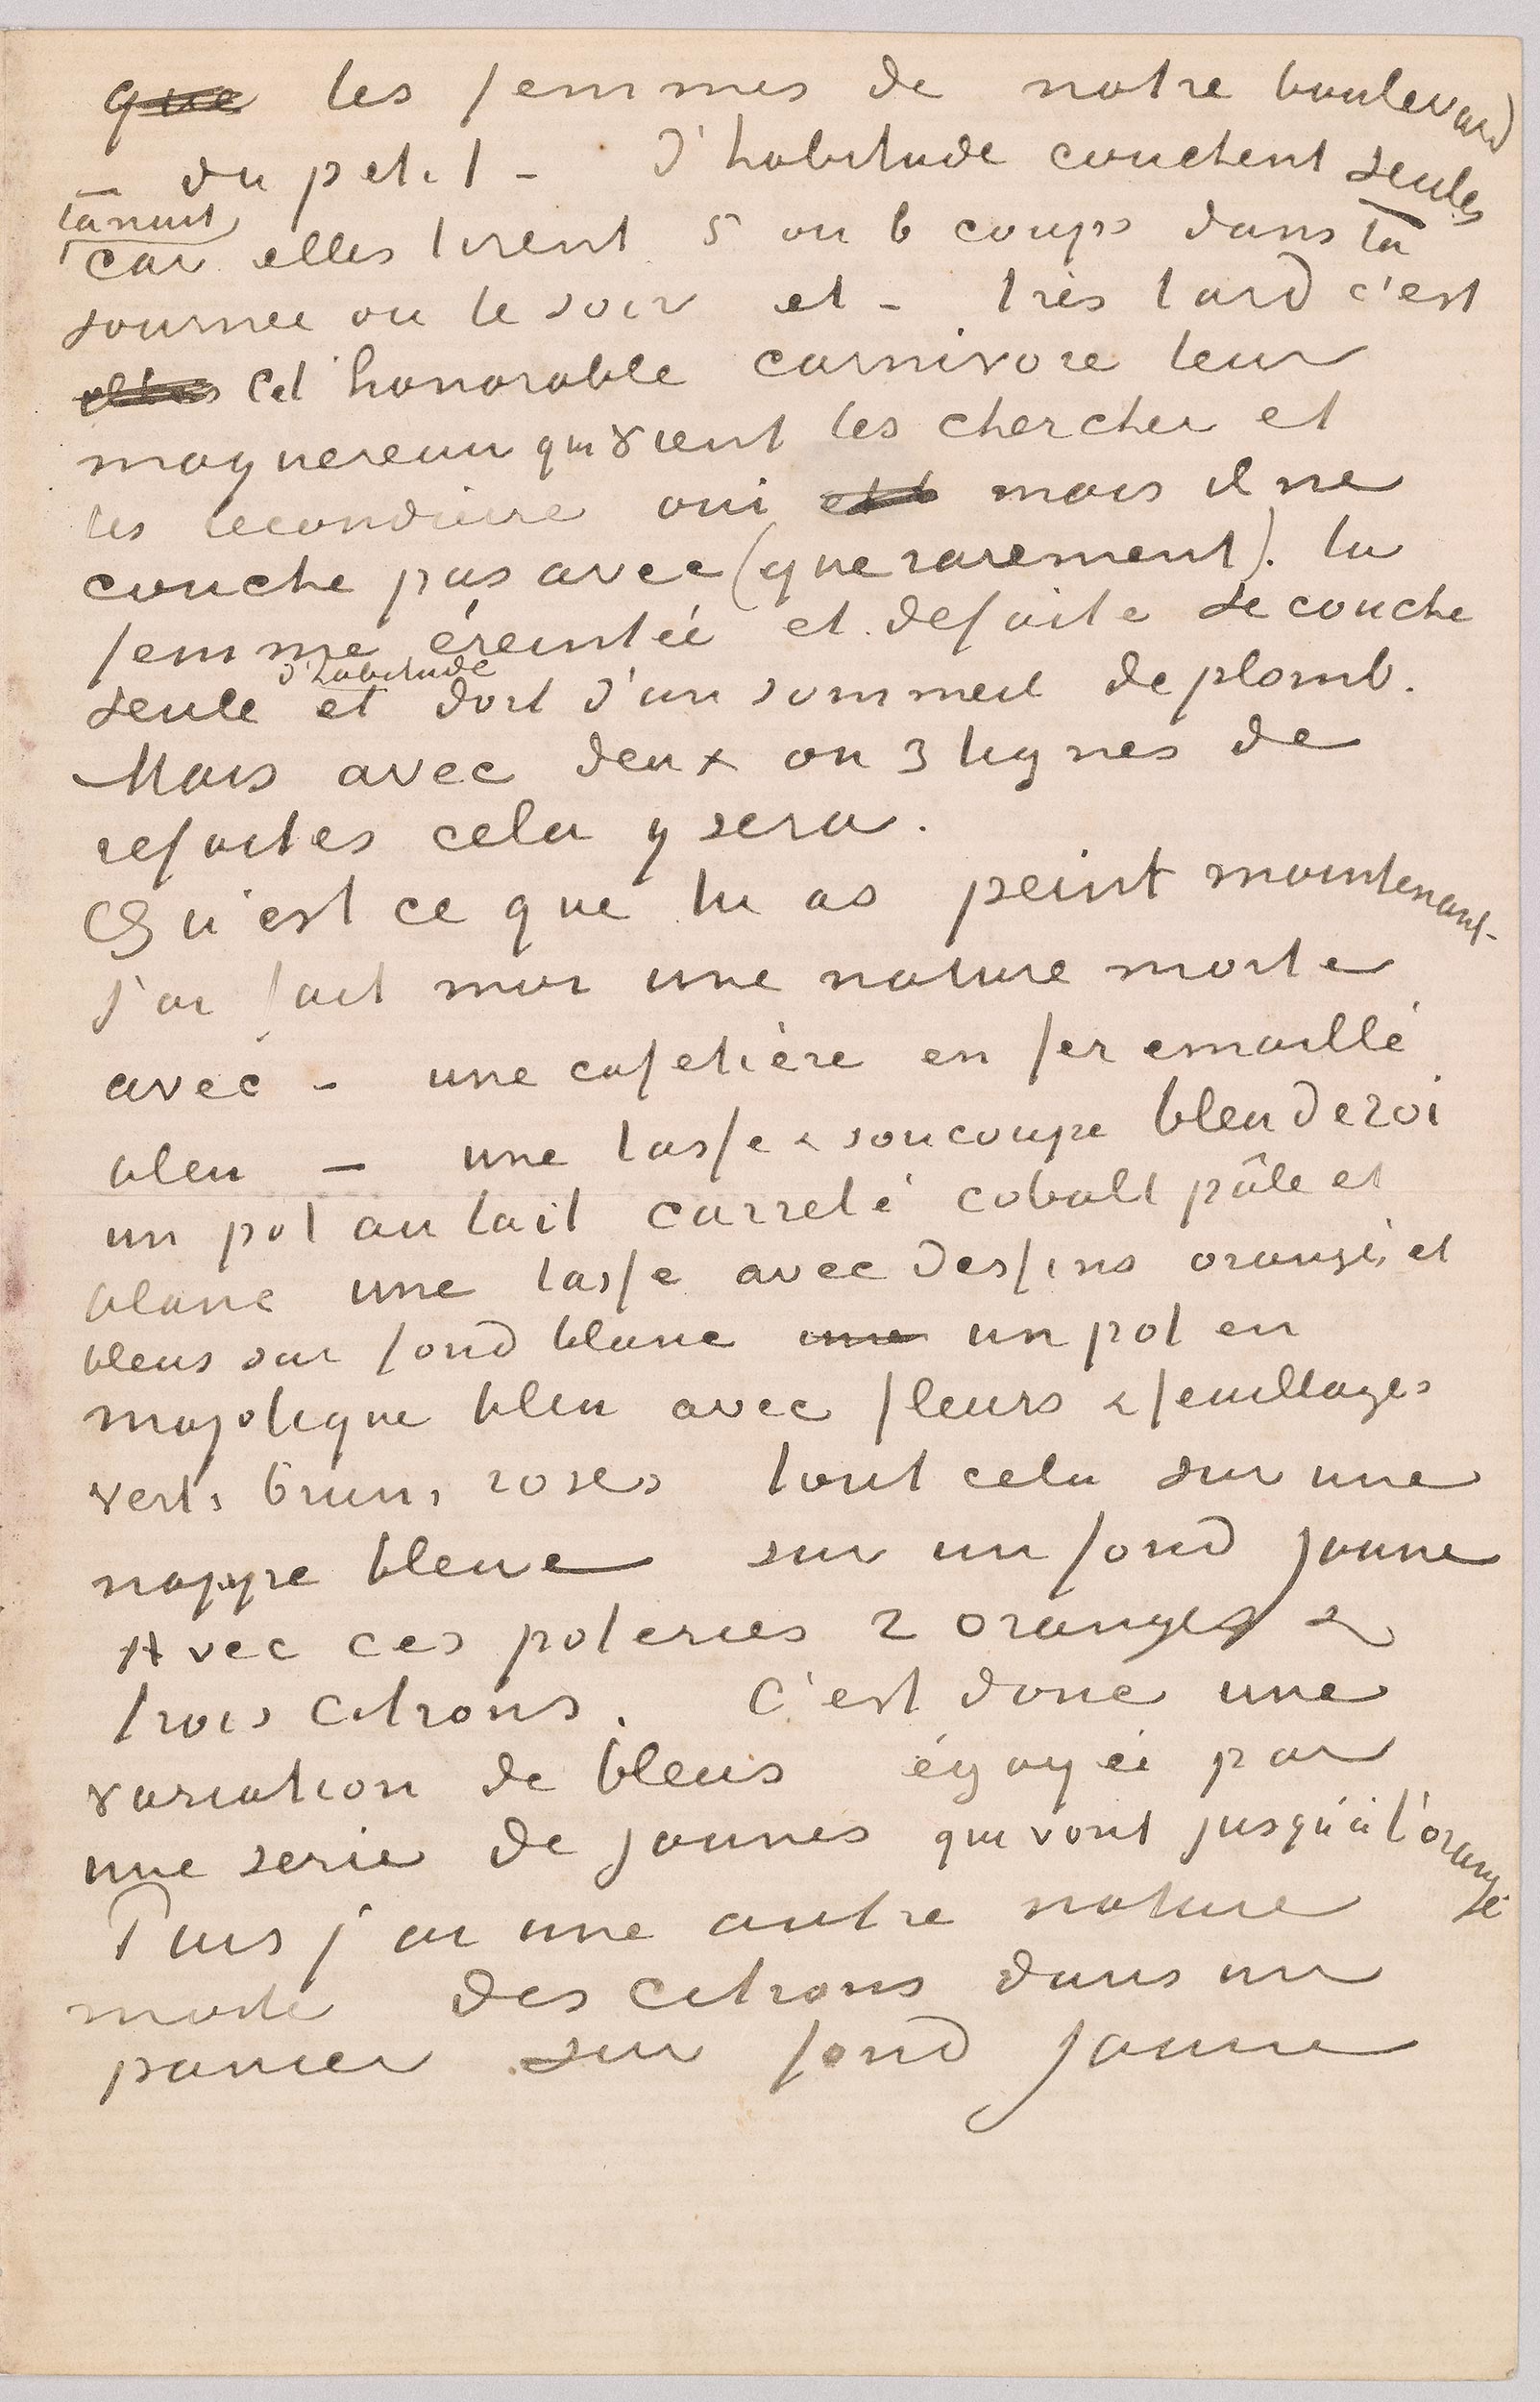 que les femmes de notre boulevard
du petit – d'habitude couchent seules
la nuit
car elles tirent 5 ou 6 coups dans la
journee ou le soir et – très tard c'est
cet honorable carnivore leur
maquereau qui vient les chercher et
les reconduire oui mais il ne
couche pas avec (que rarement). la
femme éreintée et defaite se couche
d'habitude
seule et dort d'un sommeil de plomb.
Mais avec deux ou 3 lignes de
refaites cela y sera.
Qu'est ce que tu as peint maintenant –
j'ai fait moi une nature morte
avec – une cafetière en fer emaillé
bleu – une tasse & soucoupe bleu de roi
un pot au lait carrelé cobalt pâle et
blanc une tasse avec dessins orangés et
bleus sur fond blanc une un pot en
majolique bleu avec fleurs & feuillages
verts, bruns, roses tout cela sur une
nappe bleue sur un fond jaune
Avec ces poteries 2 oranges &
trois citrons. C'est donc une
variation de bleus égayée par
une serie de jaunes qui vont jusqu'à l'orangé
Puis j'ai une autre nature
morte des citrons dans un
panier sur fond jaune